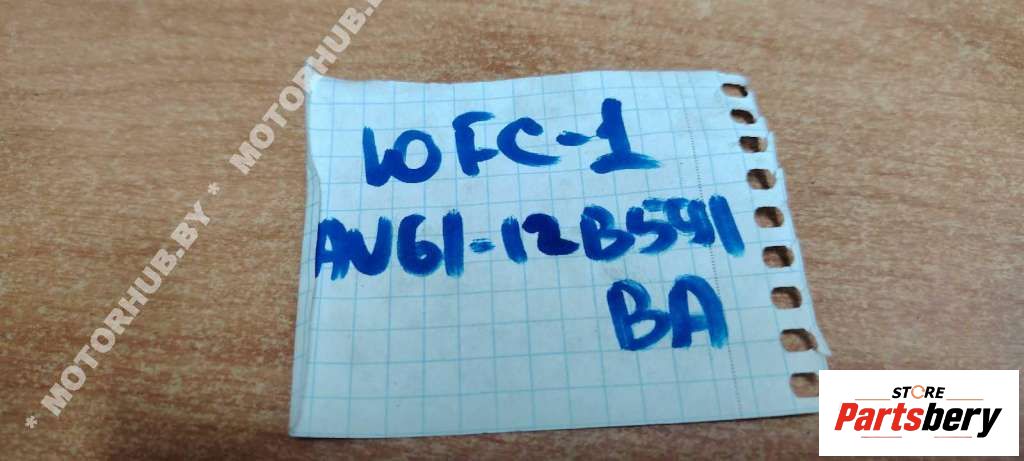 * MOTORHUB.BY * MOTORHUB.BY
WFC-1
AV61-12B591
BA
STORE
Partsbery